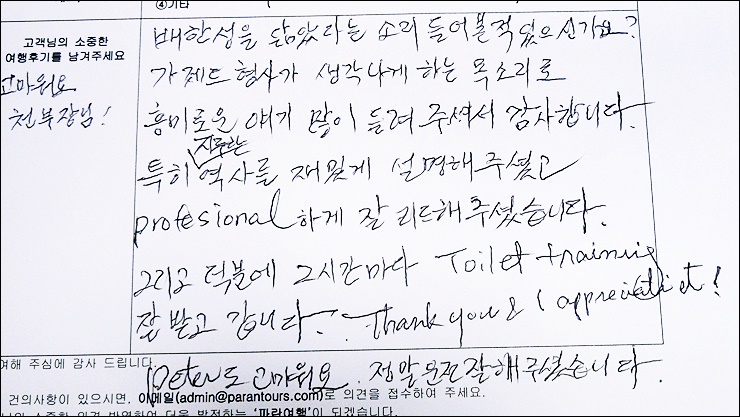 ④기타
고객님의 소중한
여행후기를 남겨주세요
고마워요
천부장님!
배한성을 닮았다는 소리 들어본적 있으신가요?
가제트형사가 생각나게 하는 목소리로
흥미로운 얘기 많이 들려 주셔서 감사합니다.
지루한
특히 역사를 재밌게 설명해주셨고
profesional하게 잘 리드해주셨습니다.
그리고 덕분에 2시간마다 Toilet training
잘 받고 갑니다. Thank you & I appreciate it!
여해 주심에 감사 드립니다.
peter도 고마워요. 정말 운전 잘해주셨습니다.
건의사항이 있으시면, 이메일(admin@parantours.com)로 의견을 접수하여 주세요.
소중한 의견 반영하여 더욱 발전하는 '파란여행'이 되겠습니다.